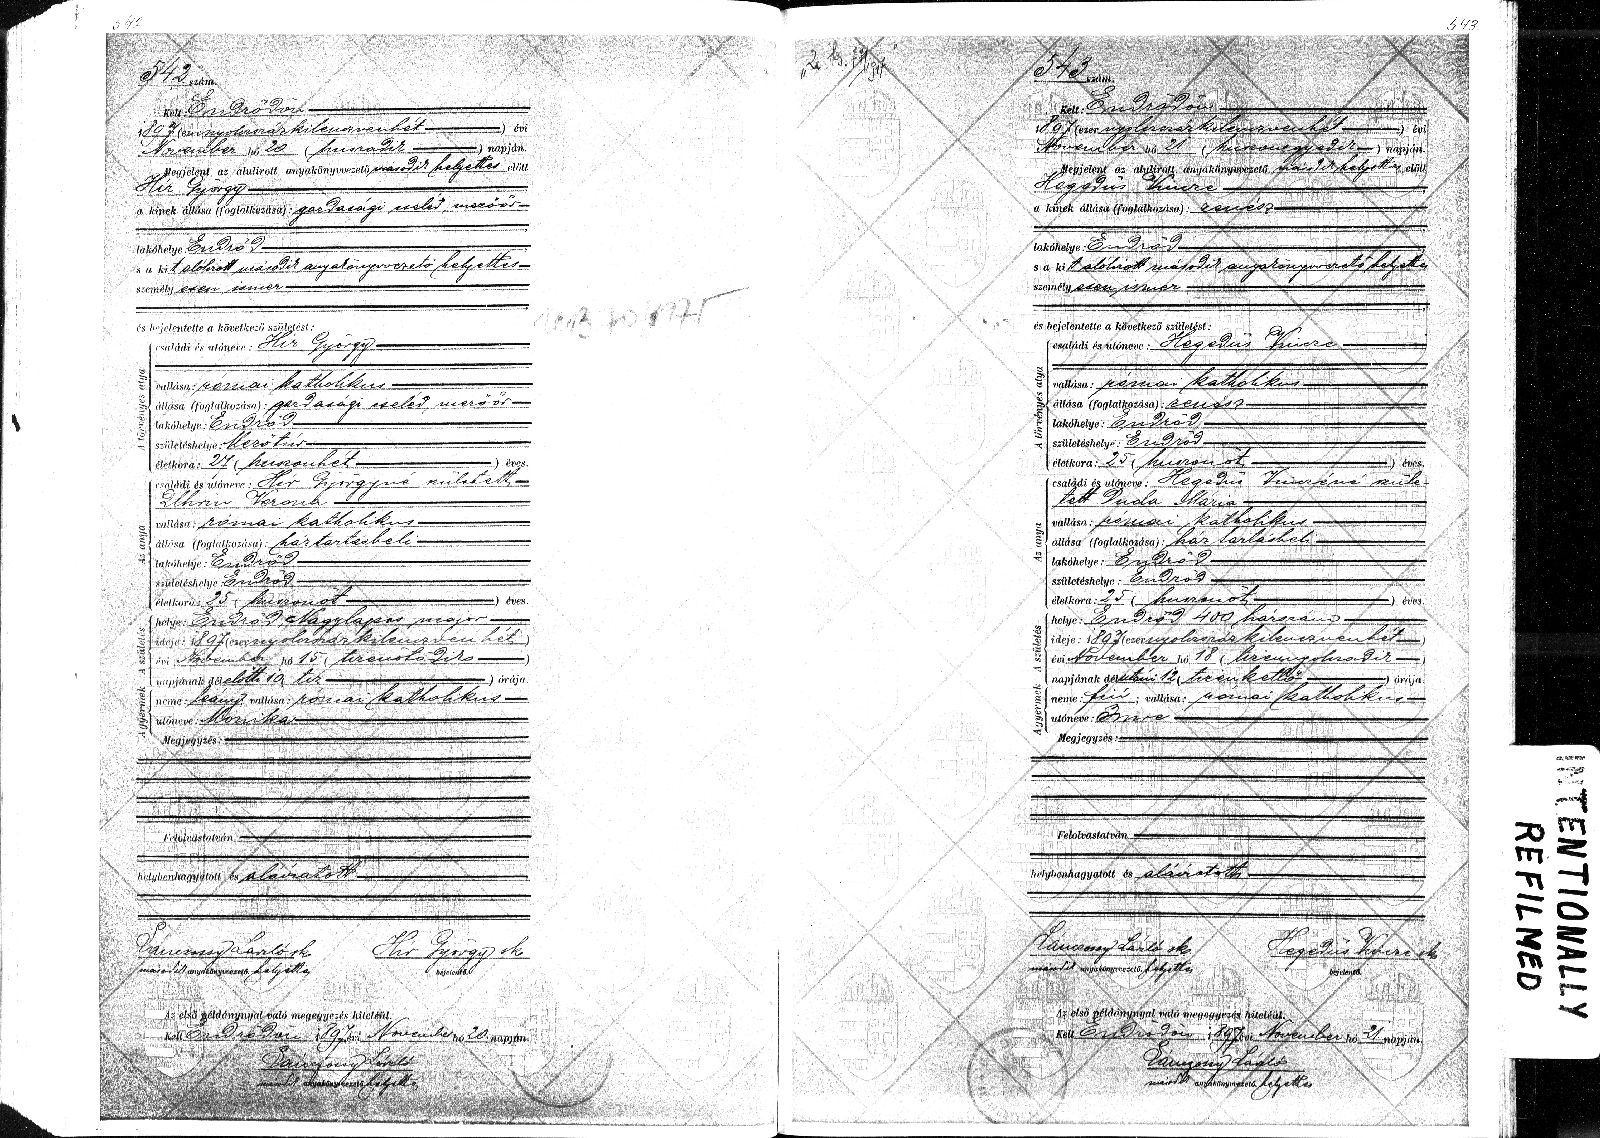 542
542 szám.
Kelt Endrődön
1897 (ezernyolczszázkilenczvenhét) évi
November hó 20 (huszadik) napján.
Megjelent az alulirott anyakönyvvezető második helyettes előtt
Hir György
a kinek állása (foglalkozása): gazdasági cseléd,
lakóhelye: Endrőd
s a kit alólirott második anyakönyvvezető helyettes
személyesen ismer
és bejelentette a következő születést:
A törvényes atya
családi és utóneve: Hir György
vallása: római katholikus
állása (foglalkozása): gazdasági cseléd,
lakóhelye: Endrőd
születéshelye:
életkora: 27 (huszonhét) éves.
Az anya
családi és utóneve: Hir Györgyné született
Verona
vallása: római katholikus
állása (foglalkozása): háztartásbeli
lakóhelye: Endrőd
születéshelye: Endrőd
életkora: 25 (huszonöt) éves.
A születés
helye: Endrőd, Nagylapos major
ideje: 1897 (ezernyolczszázkilenczvenhét)
évi November hó 15 (tizenötödik)
napjának délelőtti 10 (tiz) órája.
A gyermek
neme: leány, vallása: római katholikus
utóneve: Monika
Megjegyzés:
Felolvastatván
helybenhagyatott és aláiratott
László sk
második anyakönyvvezető helyettes
Hir György sk
bejelentő.
Az első példánynyal való megegyezés hiteléül.
Kelt Endrődön 1897 évi November hó 20 napján.
László
második anyakönyvvezető helyettes
543
543 szám.
Kelt Endrődön
1897 (ezernyolczszázkilenczvenhét) évi
November hó 21 (huszonegyedik) napján.
Megjelent az alulirott anyakönyvvezető második helyettes előtt
Hegedüs Imre
a kinek állása (foglalkozása): zenész
lakóhelye: Endrőd
s a kit alólirott második anyakönyvvezető helyettes
személyesen ismer
és bejelentette a következő születést:
A törvényes atya
családi és utóneve: Hegedüs Imre
vallása: római katholikus
állása (foglalkozása): zenész
lakóhelye: Endrőd
születéshelye: Endrőd
életkora: 25 (huszonöt) éves.
Az anya
családi és utóneve: Hegedüs Imréné szüle-
tett Duda Mária
vallása: római katholikus
állása (foglalkozása): háztartásbeli
lakóhelye: Endrőd
születéshelye: Endrőd
életkora: 25 (huszonöt) éves.
A születés
helye: Endrőd 400 házszám
ideje: 1897 (ezernyolczszázkilenczvenhét)
évi November hó 18 (tizennyolczadik)
napjának délutáni 12 (tizenkettő) órája
A gyermek
neme: fiú; vallása: római katholikus
utóneve: Imre
Megjegyzés:
Felolvastatván
helybenhagyatott és aláiratott
László sk
második anyakönyvvezető, helyettes
Hegedüs Imre sk
bejelentő
Az első példánynyal való megegyezés hiteléül.
Kelt Endrődön 1897 évi November hó 21 napján.
László
második anyakönyvvezető helyettes
INTENTIONALLY
REFILMED